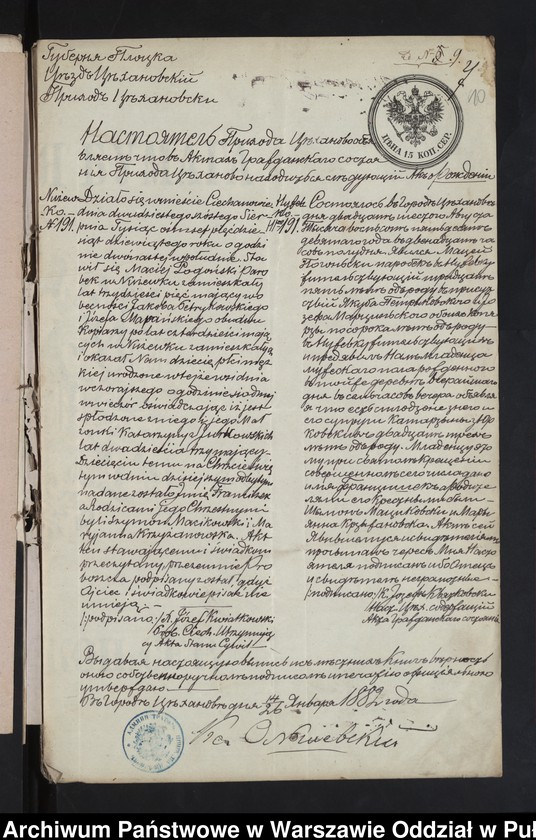 Губерня Плоцка
Уѣздъ Цѣхановскій
Приходъ Цѣхановски
9.
10
ЦѢНА 15 КОП. СЕР.
Настоятель Прихода Цѣхановского
что въ Актахъ Гражданскаго состоя
нія Прихода Цѣханово находится слѣдующій Актъ Рожденія
Niżewko
№ 191.
Działo się w mieście Ciechanowie
dnia dwudziestego szóstego Sier-
pnia Tysiąc ośmset pięćdzie-
siąt dziewiątego roku o godzi
nie dwunastej w południe. Sta
wił się Maciej Pogoński Paro
bek w Niżewku zamieszkały
lat trzydzieści pięć mający w o
becności Jakóba Petrykowskiego
i Józefa Marpańskiego obudwu
po lat czterdzieści mają
cych w Niżewku zamieszkałych
i okazał Nam dziecię płci męz
kiej urodzone w tejże wsi dnia
wczorajszego o godzinie siódmej
wieczór oświadczając iż jest
spłodzone z niego i jego Mał
żonki Katarzyny z Jurkowskich
lat dwadzieścia trzy mającej.
Dziecięciu temu na Chrzcie świę
tym w dniu dzisiejszym odbytym
nadane zostało imię Franciszek
a Rodzicami Jego Chrzestnymi
byli Szymon Macikowski i Ma
ryjanna Krzyżanowska. Akt
ten stawającemu i świadkom
przeczytany, przezemnie Pro
boszcza podpisany został, gdyż
Ojciec i świadkowie pisać nie
umieją. —
/:podpisano:/ X. Józef Kwiatkowski
Prob. Ciech. Utrzymują
cy Akta Stanu Cywil:
191.
Состоялось въ Городѣ Цѣхановѣ
дня двадцать шестого Августа
Тысяча восьмсотъ пятьдесятъ
девятаго года въ двенадцать ча
совъ пополудни. Явился Мацей
Погоньски паробекъ въ
жительствующій тридцать
пять лѣтъ отъ роду въ присут
ствіи Якуба Петрыковскаго и Іо
зефа
по сорока лѣтъ отъ роду
жительствующихъ
и предъявилъ Намъ Младенца
мужескаго пола рожденнаго
въ той же деревнѣ вчерашнаго
дня въ семь часовъ вечера объявляя
что есть сплодзоне з него и
его супруги Катарзины з Юр
ковскихъ двадцать трехъ
лѣтъ отъ роду. Младенцу это
му при святымъ крещеніи
совершенномъ сего числа дано
имя Францишекъ а родите
лями его крестными были
Шимонъ Мациковски и Марья
янна Крзыжановска. Актъ сей
явившемуся и свидетелямъ
прочитанъ черезъ Мня Насто
ятеля подписанъ ибо Отецъ
и свидетели неграмотные —
/:подписано:/ К. Іозефъ Квятковски
Наст. Цѣх. содержащій
Акта Гражданскаго состоянія
Выдавая настоящую выпись
оного собственноручнымъ подписомъ и печатью официальною
утверждаю
Въ Городѣ Цѣхановѣ дня 14/26 Января 1882 года
Кс.
Archiwum Państwowe w Warszawie Oddział w Puł